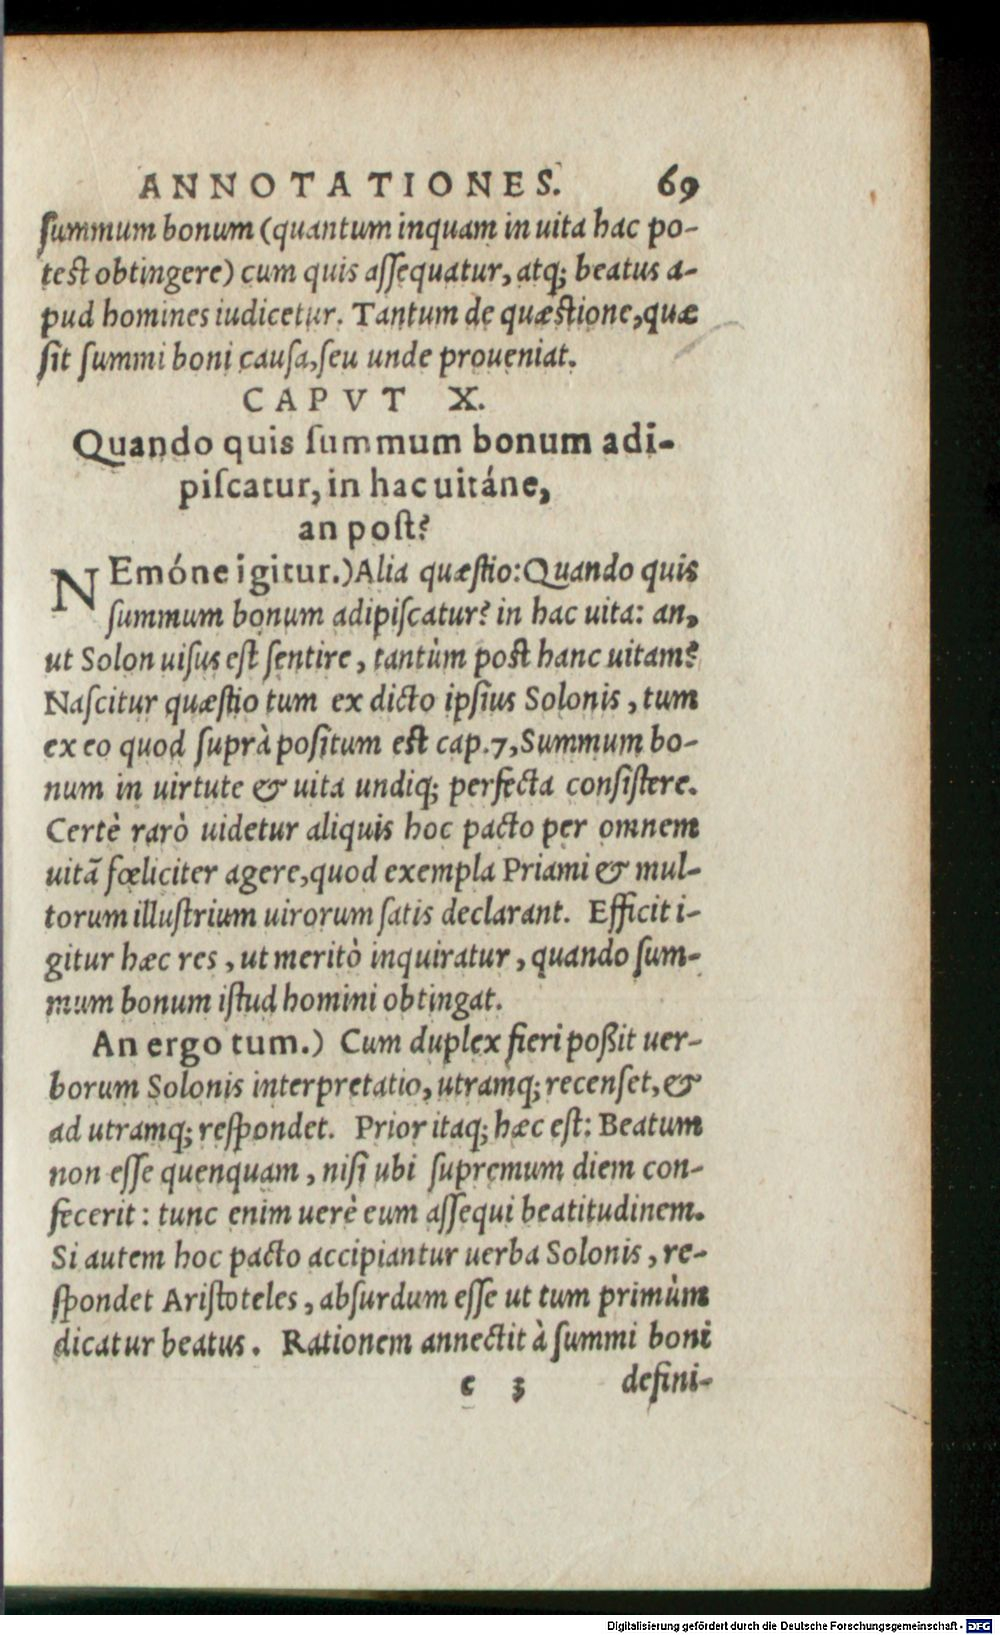 ANNOTATIONES. 69
ſummum bonum (quantum inquam in uita hac po-
test obtingere) cum quis aſſequatur, atq; beatus a-
pud homines iudicetur. Tantum de quæstione, quæ
ſit ſummi boni cauſa, ſeu unde proueniat.
CAPVT X.
Quando quis ſummum bonum adi-
piſcatur, in hac uitáne,
an poſt?
NEmóne igitur.) Alia quæſtio: Quando quis
ſummum bonum adipiſcatur? in hac uita: an,
ut Solon uiſus eſt ſentire, tantùm post hanc uitam?
Naſcitur quæſtio tum ex dicto ipſius Solonis, tum
ex eo quod ſuprà poſitum est cap. 7, Summum bo-
num in uirtute & uita undiq; perfecta conſiſtere.
Certè rarò uidetur aliquis hoc pacto per omnem
uitã fœliciter agere, quod exempla Priami & mul-
torum illuſtrium uirorum ſatis declarant. Efficit i-
gitur hæc res, ut meritò inquiratur, quando ſum-
mum bonum iſtud homini obtingat.
An ergo tum.) Cum duplex fieri poßit uer-
borum Solonis interpretatio, utramq; recenſet, &
ad utramq; reſpondet. Prior itaq; hæc est: Beatum
non eſſe quenquam, niſi ubi ſupremum diem con-
fecerit: tunc enim uerè eum aſſequi beatitudinem.
Si autem hoc pacto accipiantur uerba Solonis, re-
ſpondet Ariſtoteles, abſurdum eſſe ut tum primùm
dicatur beatus. Rationem annectit à ſummi boni
e 3 defini-
Digitalisierung gefördert durch die Deutsche Forschungsgemeinschaft - DFG